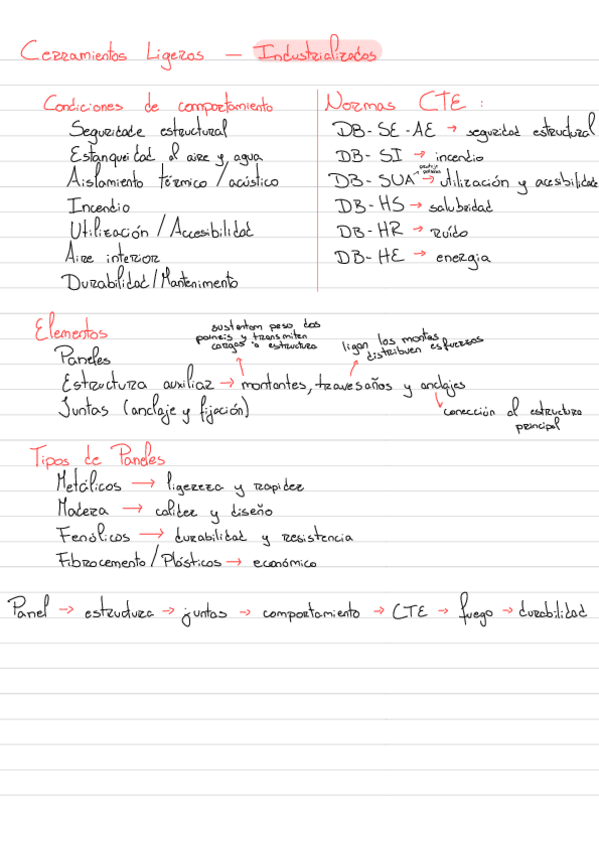 Cerramientos Ligeros — Industrializados
Condiciones de comportamiento
Seguridade estructural
Estanqueidad al aire y agua
Aislamiento térmico / acústico
Incendio
Utilización / Accesibilidad
Aire interior
Durabilidad / Mantenimento
Normas CTE :
DB-SE-AE → seguridad estructural
DB-SI → incendio
DB-SUA → utilización y acesbilidade
DB-HS → salubridad
DB-HR → ruído
DB-HE → energia
Elementos
sustentam peso dos
paineis y transmiten
cargas a estructura
ligan los montas
distribuen esfuersos
Paneles
Estructura auxiliar → montantes, travesaños y anclajes
Juntas (anclaje y fijación)
conección al estructura
principal
Tipos de Paneles
Metálicos → ligereza y rapidez
Madera → calidez y diseño
Fenólicos → durabilidad y resistencia
Fibrocemento / Plásticos → económico
Panel → estrudura → juntas → comportamiento → CTE → fuego → durabilidad